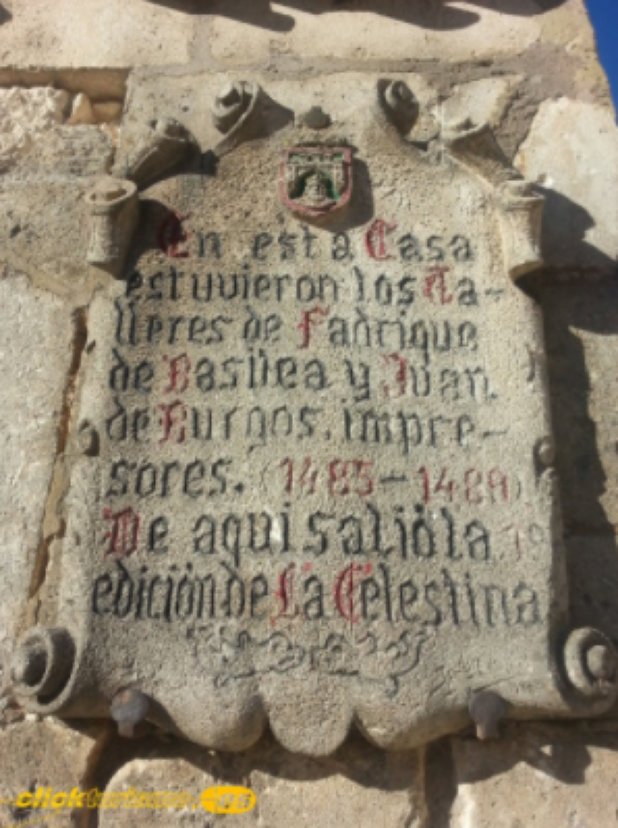 En esta Casa
estuvieron los Ta-
lleres de Fadrique
de Basilea y Juan
de Burgos, impre-
sores. (1485-1489)
De aqui salió la 1ª
edición de La Celestina
clickturismo.es